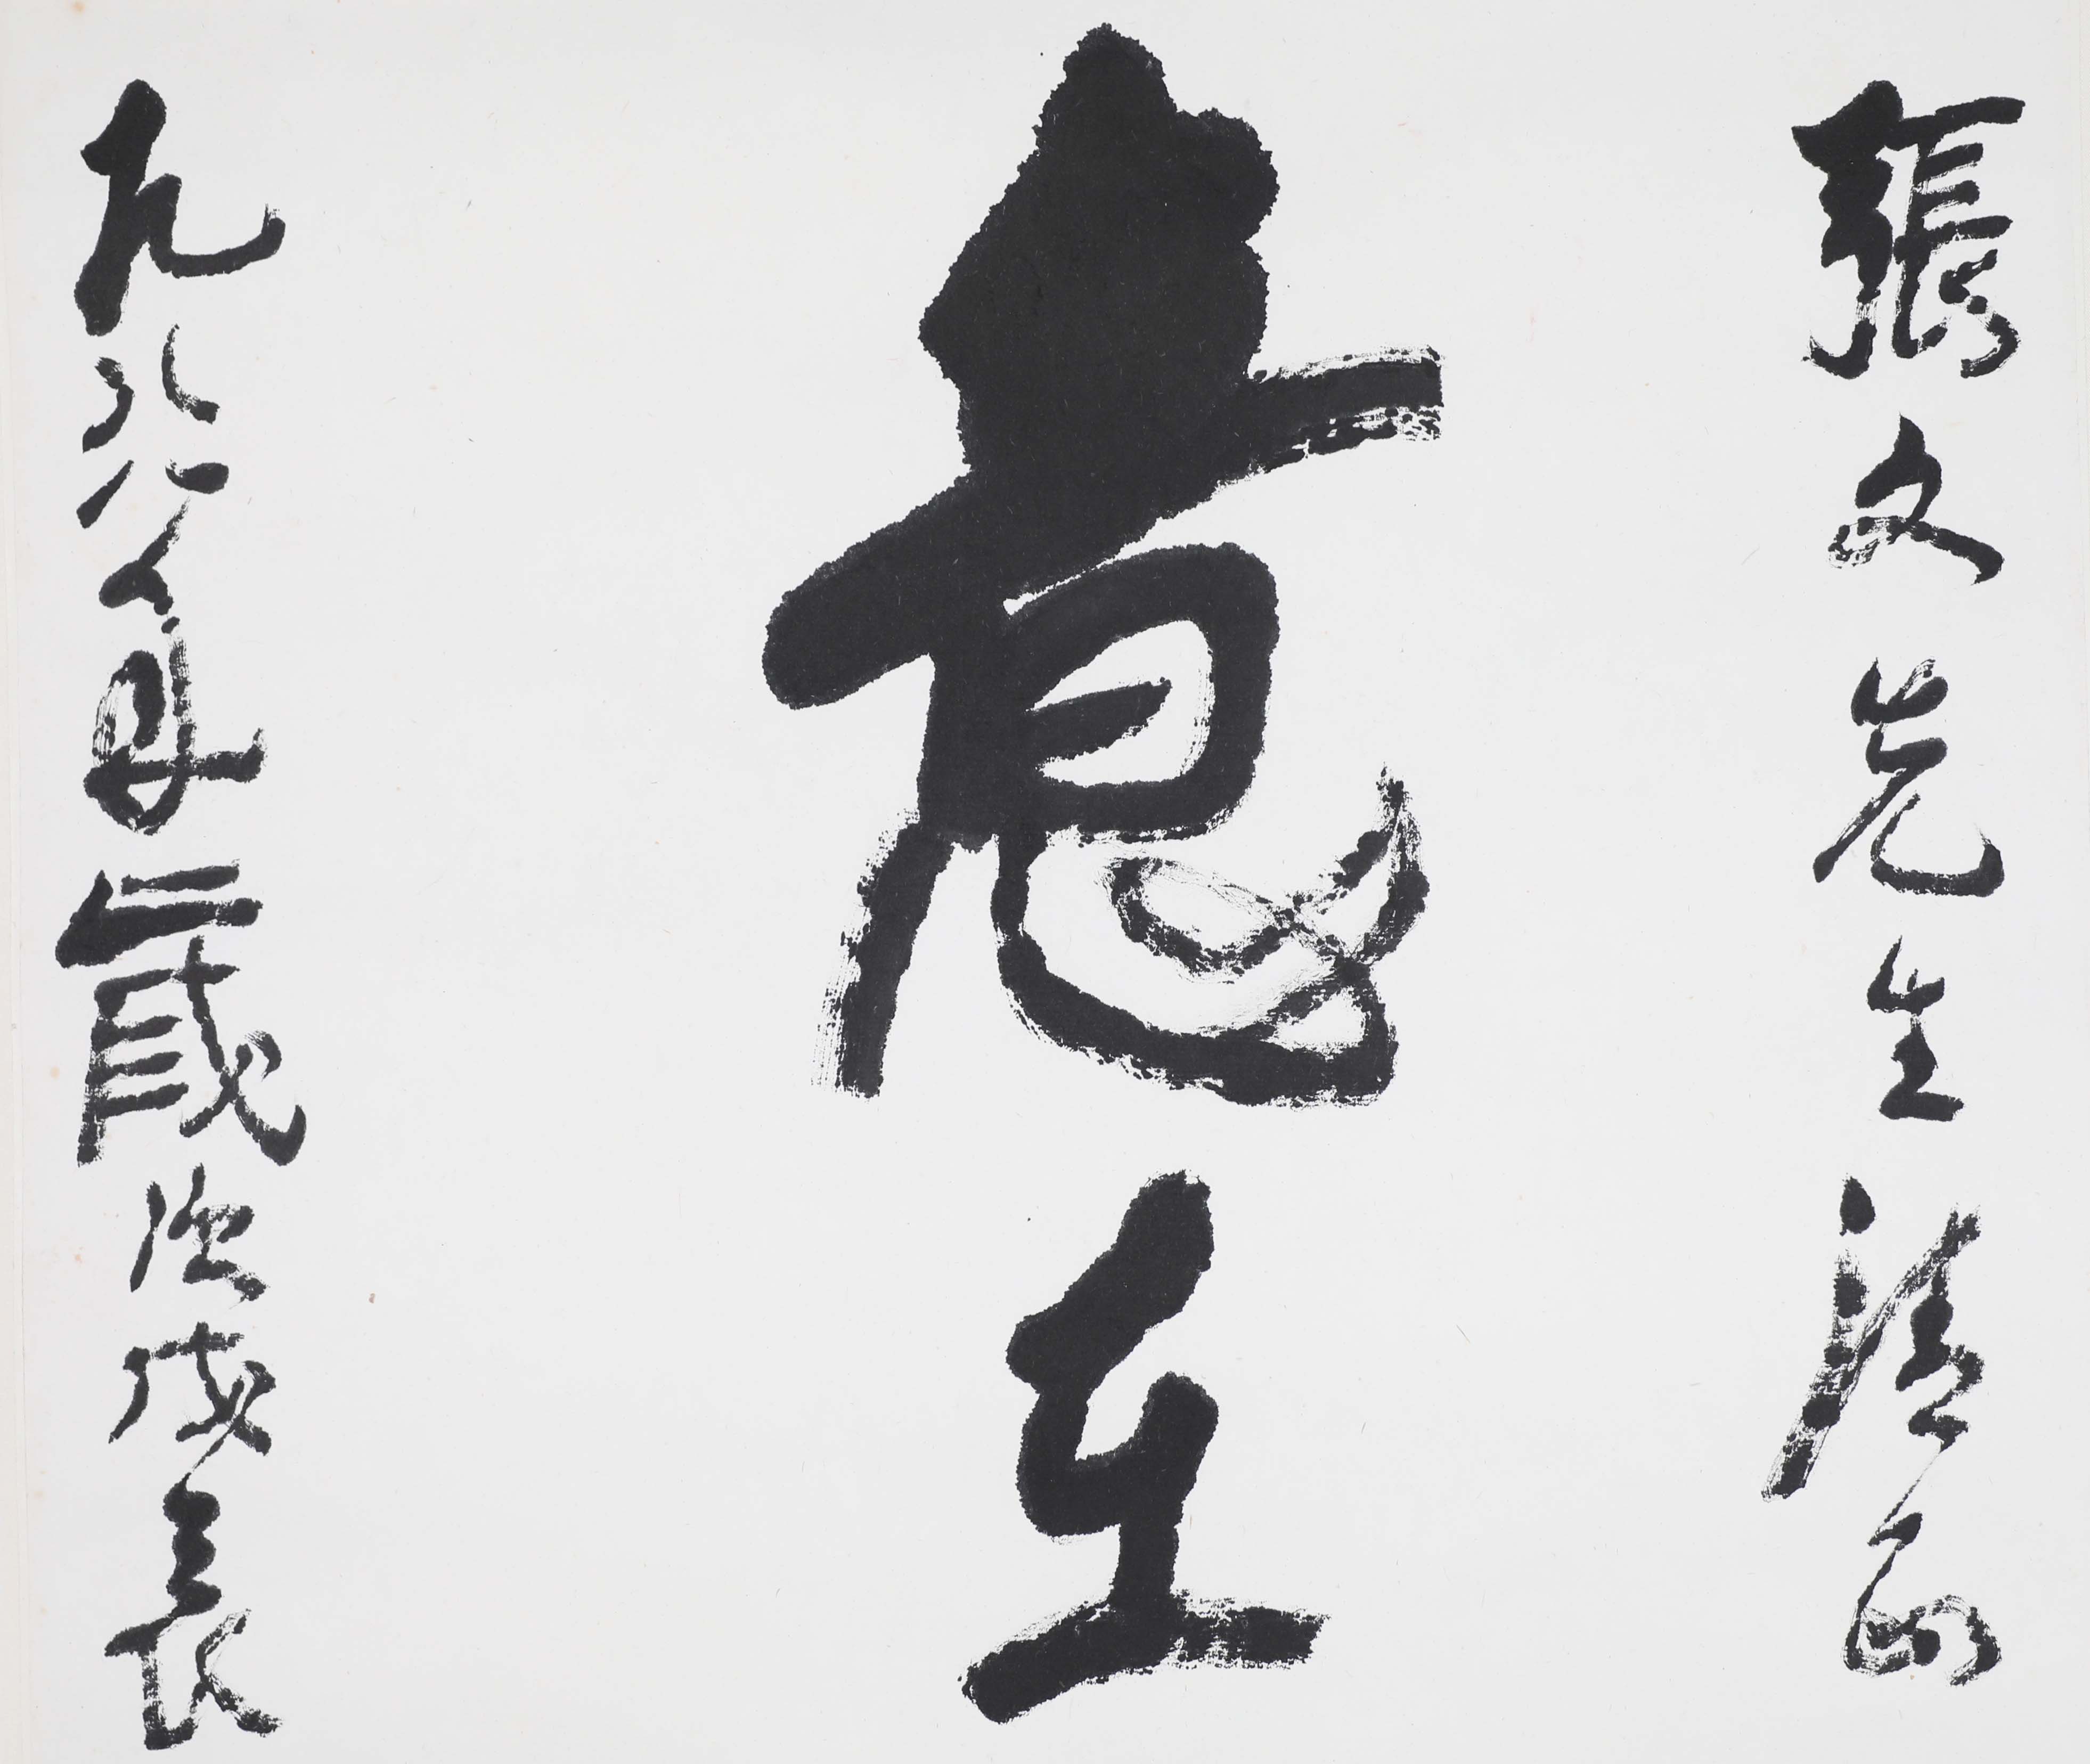 張文先生清正
意在
九八八年歲次戊辰